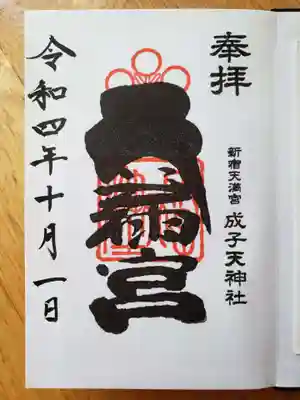 奉拝
新宿天満宮 成子天神社
天満宮
令和四年十月一日